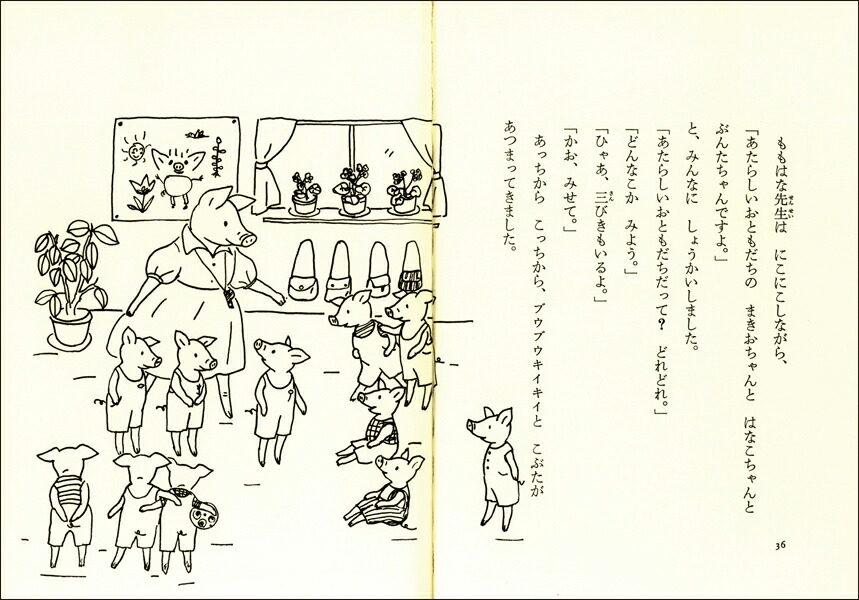 ももはな先生は　にこにこしながら、
「あたらしいおともだちの　まきおちゃんと　はなこちゃんと
ぶんたちゃんですよ。」
と、みんなに　しょうかいしました。
「あたらしいおともだちだって？　どれどれ。」
「どんなこか　みよう。」
「ひゃあ、三びきもいるよ。」
「かお、みせて。」
あっちから　こっちから、ブウブウキイキイと　こぶたが
あつまってきました。
36